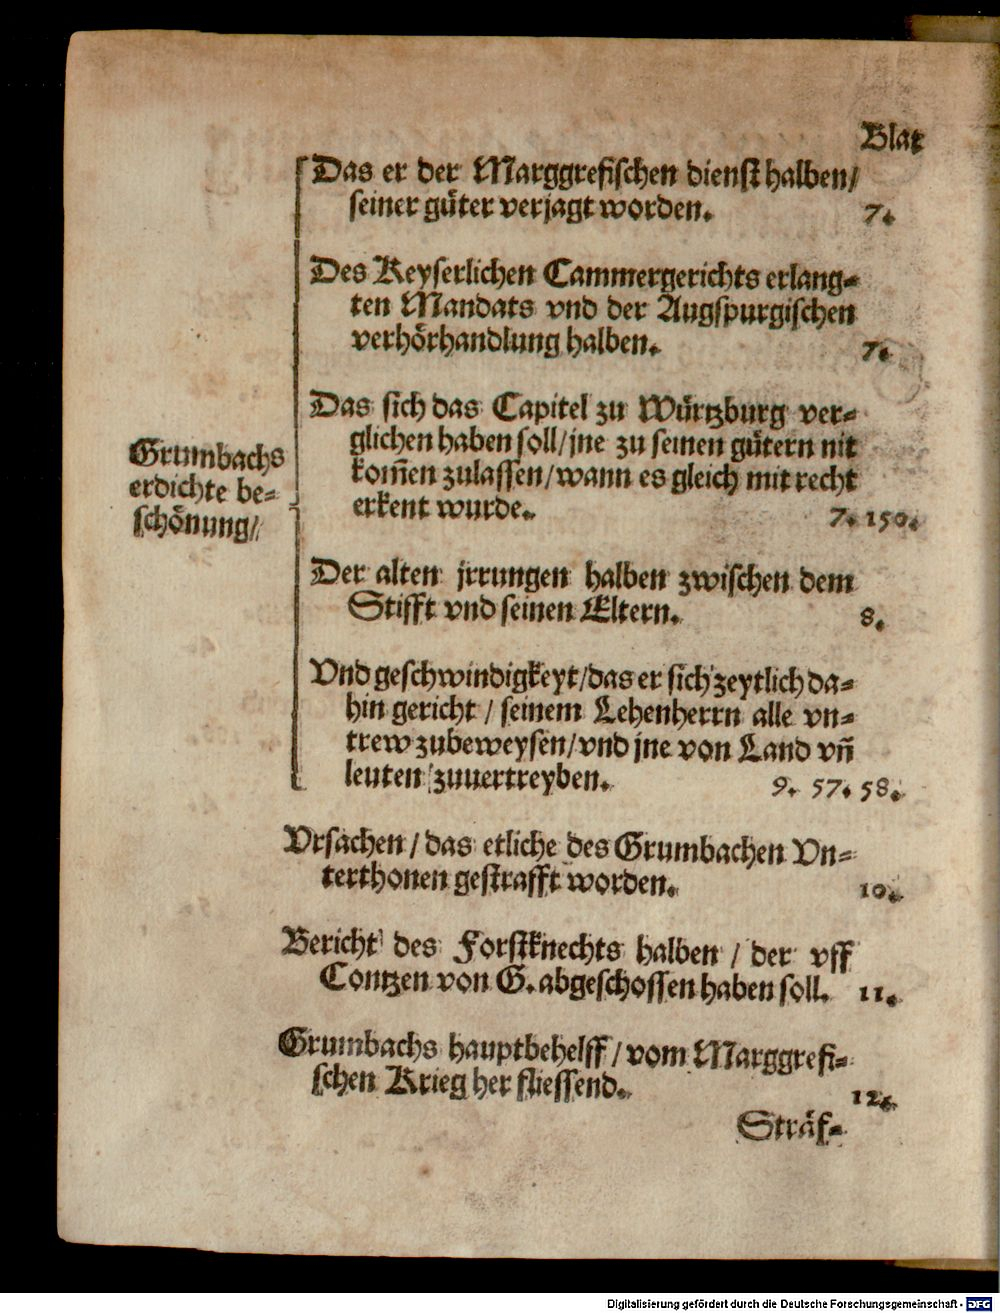 Blat
Das er der Marggrefischen dienst halben/
seiner güter verjagt worden. 7.
Des Keyserlichen Cammergerichts erlang-
ten Mandats vnd der Augspurgischen
verhörhandlung halben. 7.
Das sich das Capitel zu Würtzburg ver-
glichen haben soll/jne zu seinen gütern nit
kom̃en zulassen/wann es gleich mit recht
erkent wurde. 7. 150.
Grumbachs
erdichte be-
schönung/
Der alten jrrungen halben zwischen dem
Stifft vnd seinen Eltern. 8.
Vnd geschwindigkeyt/das er sich zeytlich da-
hin gericht / seinem Lehenherrn alle vn-
trew zubeweysen/vnd jne von Land vñ
leuten zuuertreyben. 9. 57. 58.
Vrsachen / das etliche des Grumbachen Vn-
terthonen gestrafft worden. 10.
Bericht des Forstknechts halben / der vff
Contzen von G. abgeschossen haben soll. 11.
Grumbachs hauptbehelff / vom Marggrefi-
schen Krieg her fliessend. 12.
Sträf-
Digitalisierung gefördert durch die Deutsche Forschungsgemeinschaft - DFG